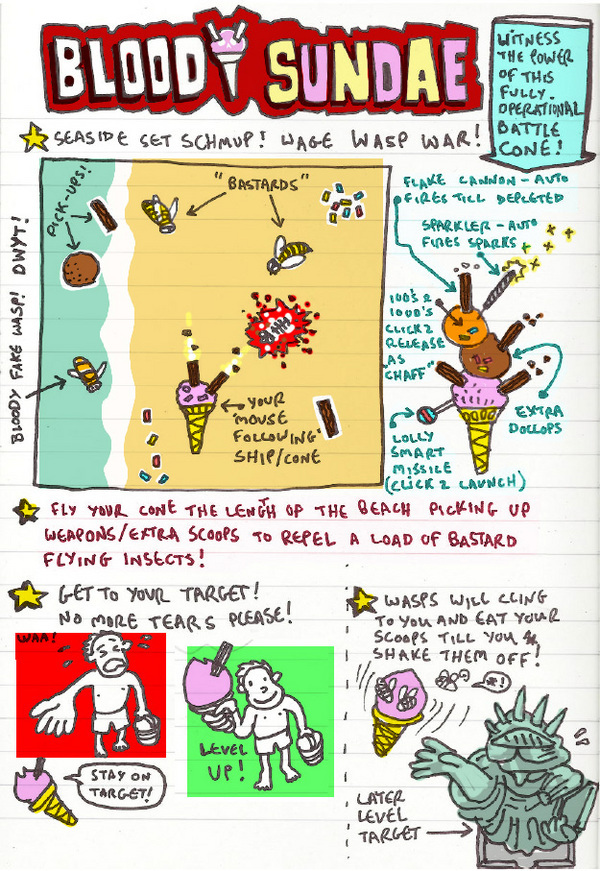 BLOODY SUNDAE
WITNESS
THE POWER
OF THIS
FULLY
OPERATIONAL
BATTLE
CONE!
SEASIDE SET SCHMUP! WAGE WASP WAR!
PICK-UPS!
"BASTARDS"
BLOODY FAKE WASP! DWYT!
BANG
YOUR
'MOUSE
FOLLOWING'
SHIP/CONE
FLAKE CANNON - AUTO
FIRES TILL DEPLETED
SPARKLER - AUTO
FIRES SPARKS
100'S &
1000'S
CLICK 2
RELEASE
"AS
CHAFF"
EXTRA
DOLLOPS
LOLLY
SMART
MISSILE
(CLICK 2 LAUNCH)
FLY YOUR CONE THE LENGTH OF THE BEACH PICKING UP
WEAPONS/EXTRA SCOOPS TO REPEL A LOAD OF BASTARD
FLYING INSECTS!
GET TO YOUR TARGET!
NO MORE TEARS PLEASE!
WAA!
STAY ON
TARGET!
LEVEL
UP!
WASPS WILL CLING
TO YOU AND EAT YOUR
SCOOPS TILL YOU
SHAKE THEM OFF!
LATER
LEVEL
TARGET